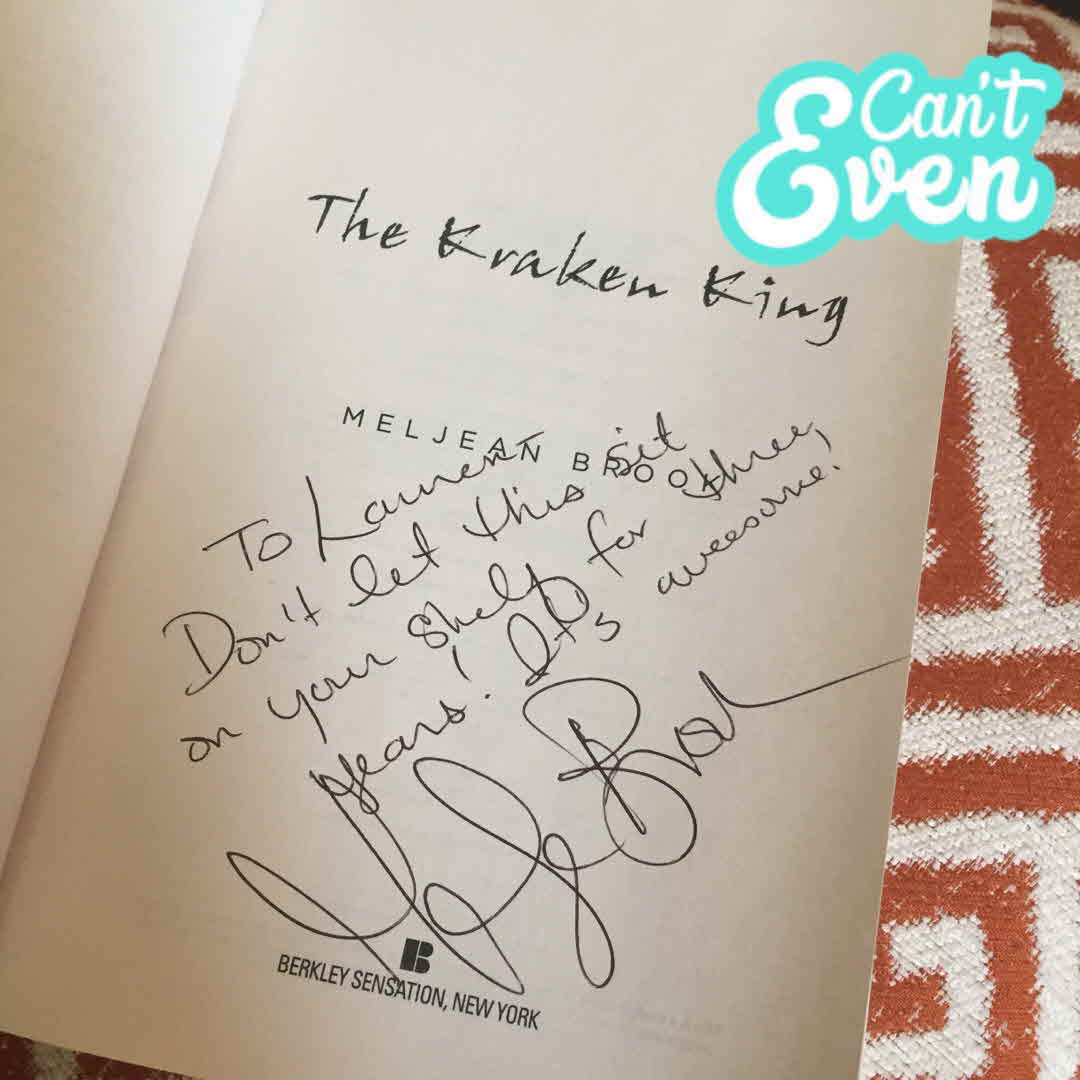 Can't
Even
The Kraken King
MELJEAN BROOK
To Lauren –
Don't let this sit
on your shelf for three
years! It's awesome!
B
BERKLEY SENSATION, NEW YORK